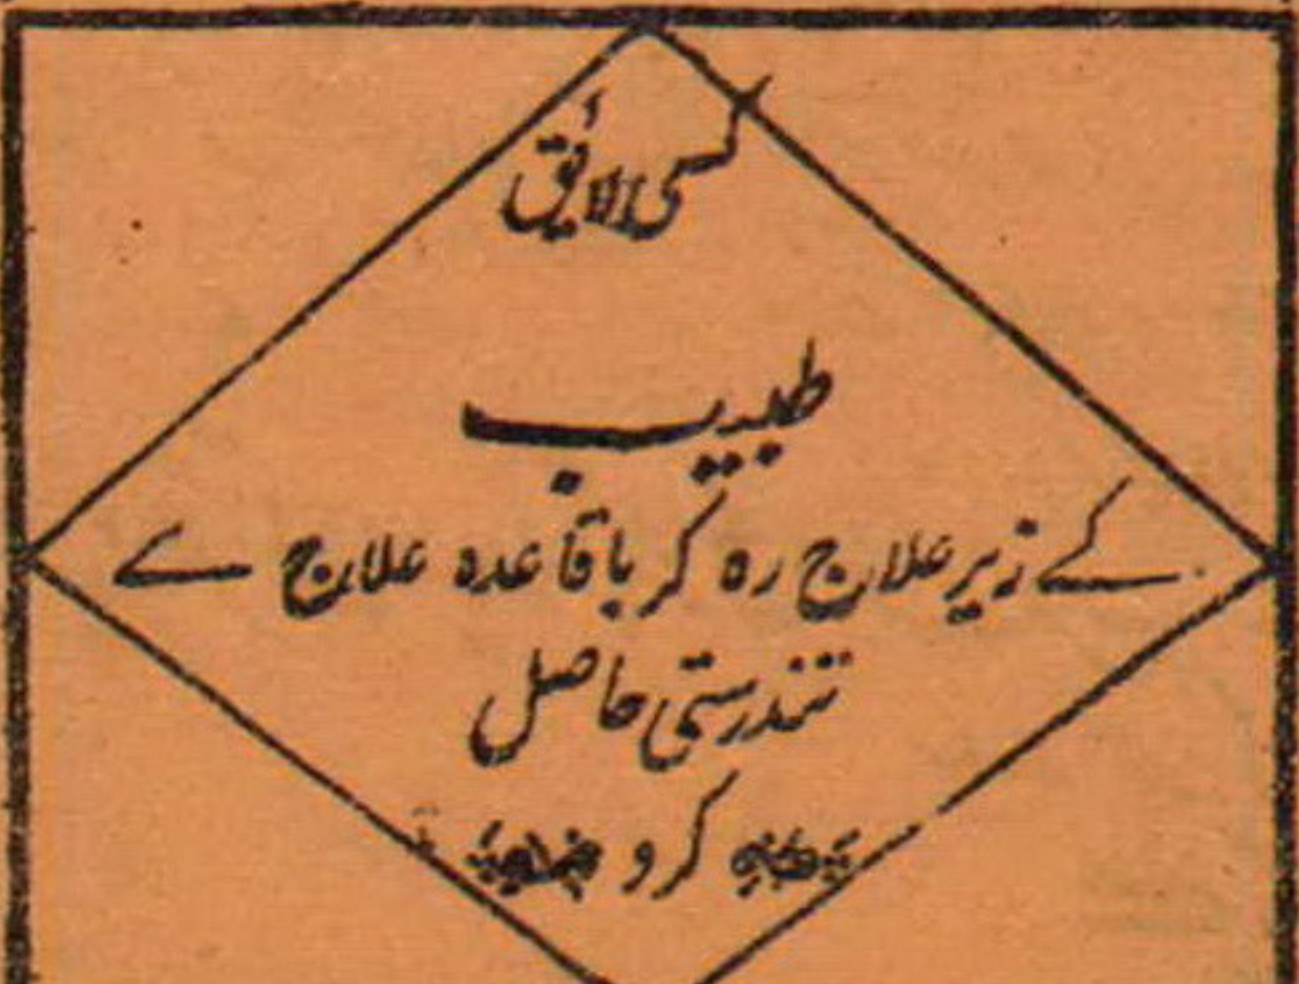 کسی لائق
طبیب
کے زیر علاج رہ کر باقاعدہ علاج سے
تندرستی حاصل
کرو